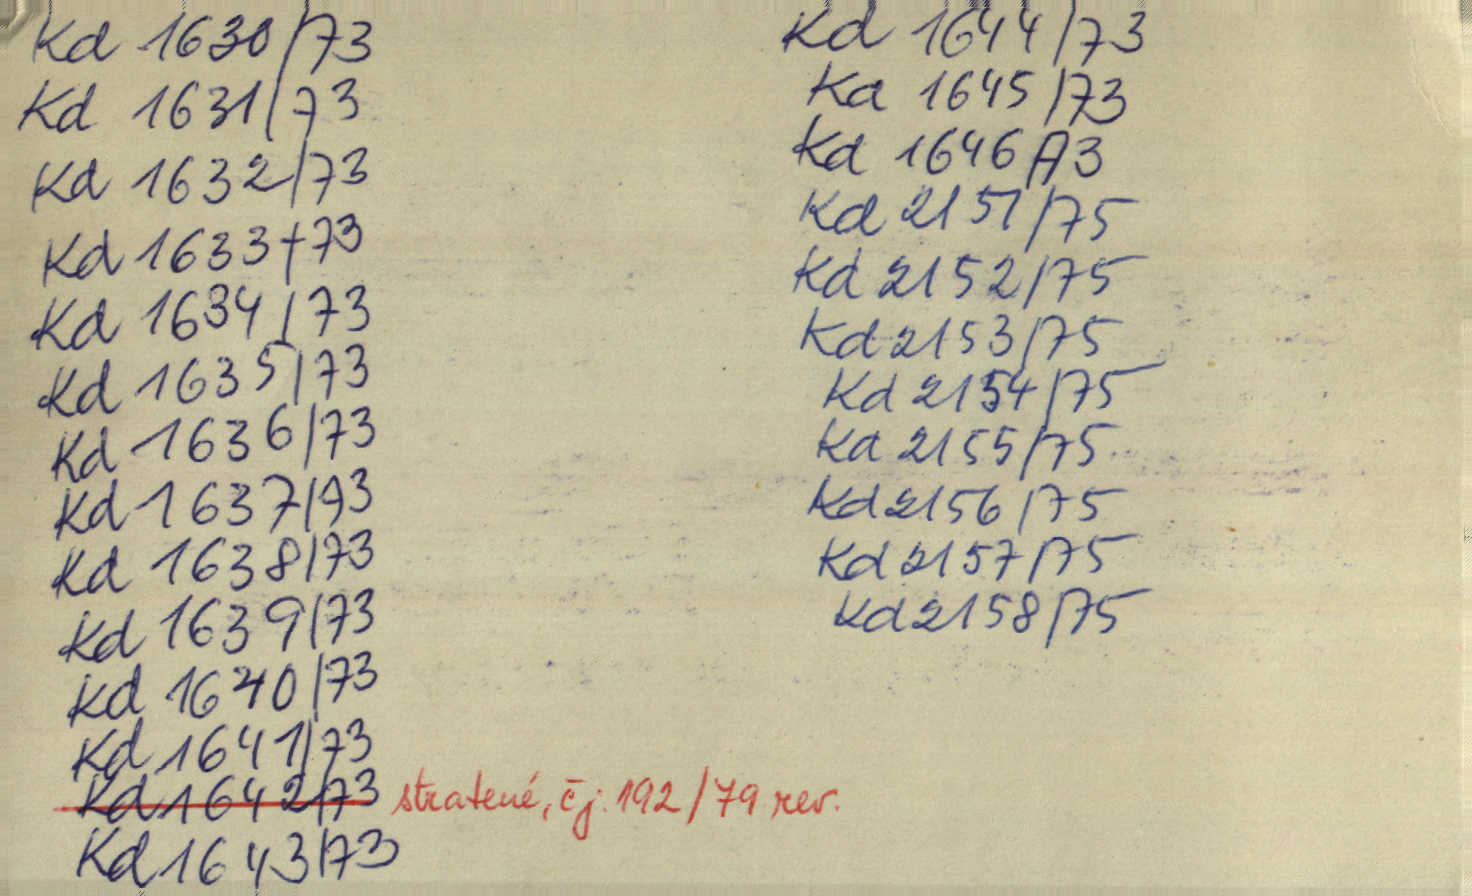 Kd 1630/73
Kd 1631/73
Kd 1632/73
Kd 1633/73
Kd 1634/73
Kd 1635/73
Kd 1636/73
Kd 1637/73
Kd 1638/73
Kd 1639/73
Kd 1640/73
Kd 1641/73
Kd 1642/73 stratené, čj. 192/79 rev.
Kd 1643/73
Kd 1644/73
Kd 1645/73
Kd 1646/73
Kd 2151/75
Kd 2152/75
Kd 2153/75
Kd 2154/75
Kd 2155/75
Kd 2156/75
Kd 2157/75
Kd 2158/75